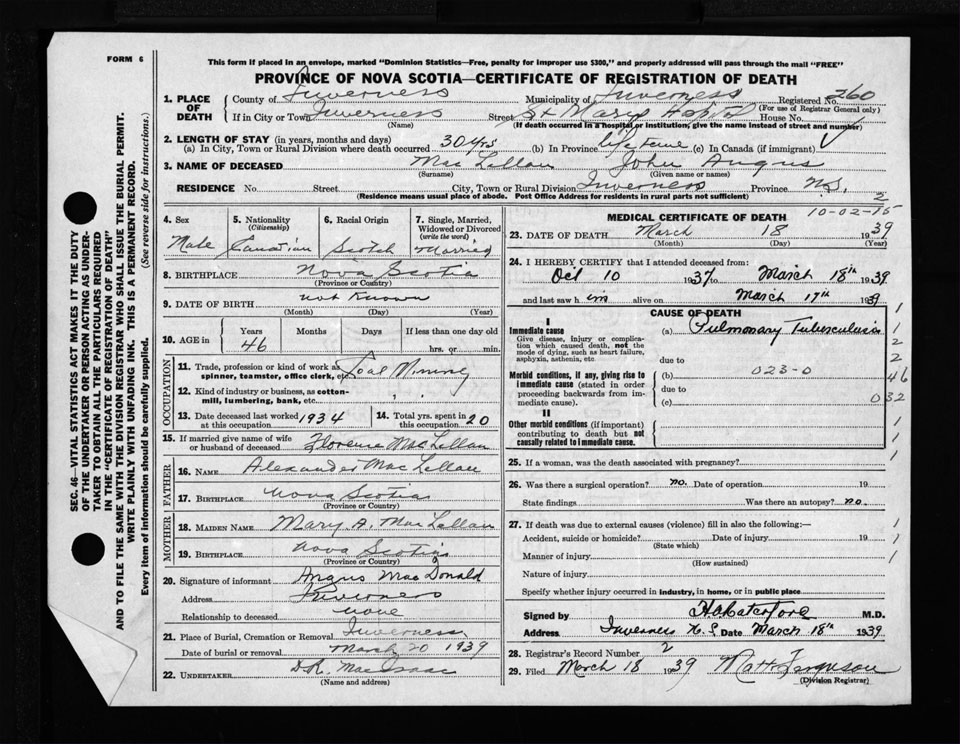 FORM 6
This form if placed in an envelope, marked "Dominion Statistics—Free, penalty for improper use $300," and properly addressed will pass through the mail "FREE"
PROVINCE OF NOVA SCOTIA—CERTIFICATE OF REGISTRATION OF DEATH
1. PLACE OF DEATH
County of Inverness Municipality of Inverness Registered No. 260
(For use of Registrar General only)
If in City or Town Inverness Street St Marys House No.
(Name) (If death occurred in a hospital or institution, give the name instead of street and number)
2. LENGTH OF STAY (in years, months and days)
(a) In City, Town or Rural Division where death occurred 30 yrs (b) In Province lifetime (c) In Canada (if immigrant)
3. NAME OF DECEASED Mac Lellan John Angus
(Surname) (Given name or names)
RESIDENCE No. Street City, Town or Rural Division Inverness Province N.S.
(Residence means usual place of abode. Post Office Address for residents in rural parts not sufficient) 2
4. Sex Male
5. Nationality (Citizenship) Canadian
6. Racial Origin Scotch
7. Single, Married, Widowed or Divorced (write the word) Married
8. BIRTHPLACE Nova Scotia
(Province or Country)
9. DATE OF BIRTH not Known
(Month) (Day) (Year)
10. AGE in Years Months Days If less than one day old
46 hrs. or min.
OCCUPATION
11. Trade, profession or kind of work as spinner, teamster, office clerk, etc. Coal Mining
12. Kind of industry or business, as cotton-mill, lumbering, bank, etc. " "
13. Date deceased last worked at this occupation 1934
14. Total yrs. spent in this occupation 20
15. If married give name of wife or husband of deceased Florence MacLellan
FATHER
16. NAME Alexander Mac Lellan
17. BIRTHPLACE Nova Scotia
(Province or Country)
MOTHER
18. MAIDEN NAME Mary A. Mac Lellan
19. BIRTHPLACE Nova Scotia
(Province or Country)
20. Signature of informant Angus MacDonald
Address Inverness
Relationship to deceased None
21. Place of Burial, Cremation or Removal Inverness
Date of burial or removal March 20 1939
22. UNDERTAKER D.R. MacIsaac
(Name and address)
MEDICAL CERTIFICATE OF DEATH 10-02-15
23. DATE OF DEATH March 18 1939
(Month) (Day) (Year)
24. I HEREBY CERTIFY that I attended deceased from:
Oct 10 1937 to March 18th 1939
and last saw him alive on March 17th 1939
CAUSE OF DEATH
I
Immediate cause (a) Pulmonary Tuberculosis
Give disease, injury or complication which caused death, not the mode of dying, such as heart failure, asphyxia, asthenia, etc. due to
Morbid conditions, if any, giving rise to immediate cause (stated in order proceeding backwards from immediate cause). (b) 023-0
due to
(c)
II
Other morbid conditions (if important) contributing to death but not causally related to immediate cause.
1
1
2
2
46
032
1
1
1
25. If a woman, was the death associated with pregnancy?
26. Was there a surgical operation? no. Date of operation 19
State findings Was there an autopsy? no.
27. If death was due to external causes (violence) fill in also the following:—
Accident, suicide or homicide? Date of injury 19
(State which)
Manner of injury
(How sustained)
Nature of injury
Specify whether injury occurred in industry, in home, or in public place
1
1
1
Signed by M.D.
Address Inverness N.S Date March 18th 1939
28. Registrar's Record Number 2
29. Filed March 18 1939 Matt Ferguson
(Division Registrar)
SEC. 46—VITAL STATISTICS ACT MAKES IT THE DUTY
OF THE UNDERTAKER OR PERSON ACTING AS UNDER-
TAKER TO OBTAIN ALL THE PARTICULARS REQUIRED
IN THE "CERTIFICATE OF REGISTRATION OF DEATH"
AND TO FILE THE SAME WITH THE DIVISION REGISTRAR WHO SHALL ISSUE THE BURIAL PERMIT.
WRITE PLAINLY WITH UNFADING INK. THIS IS A PERMANENT RECORD.
Every item of information should be carefully supplied. (See reverse side for instructions.)